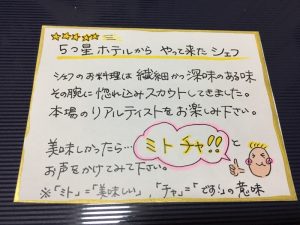 ☆☆☆☆☆
5つ星ホテルから やって来た シェフ
シェフのお料理は 繊細かつ 深味のある味
その腕に 惚れ込みスカウトしてきました。
本場の リアルテイストを お楽しみ下さい。
美味しかったら…
ミトチャ!!
と
お声をかけてみて下さい。
※「ミト」=「美味しい」,「チャ」=「です」の意味